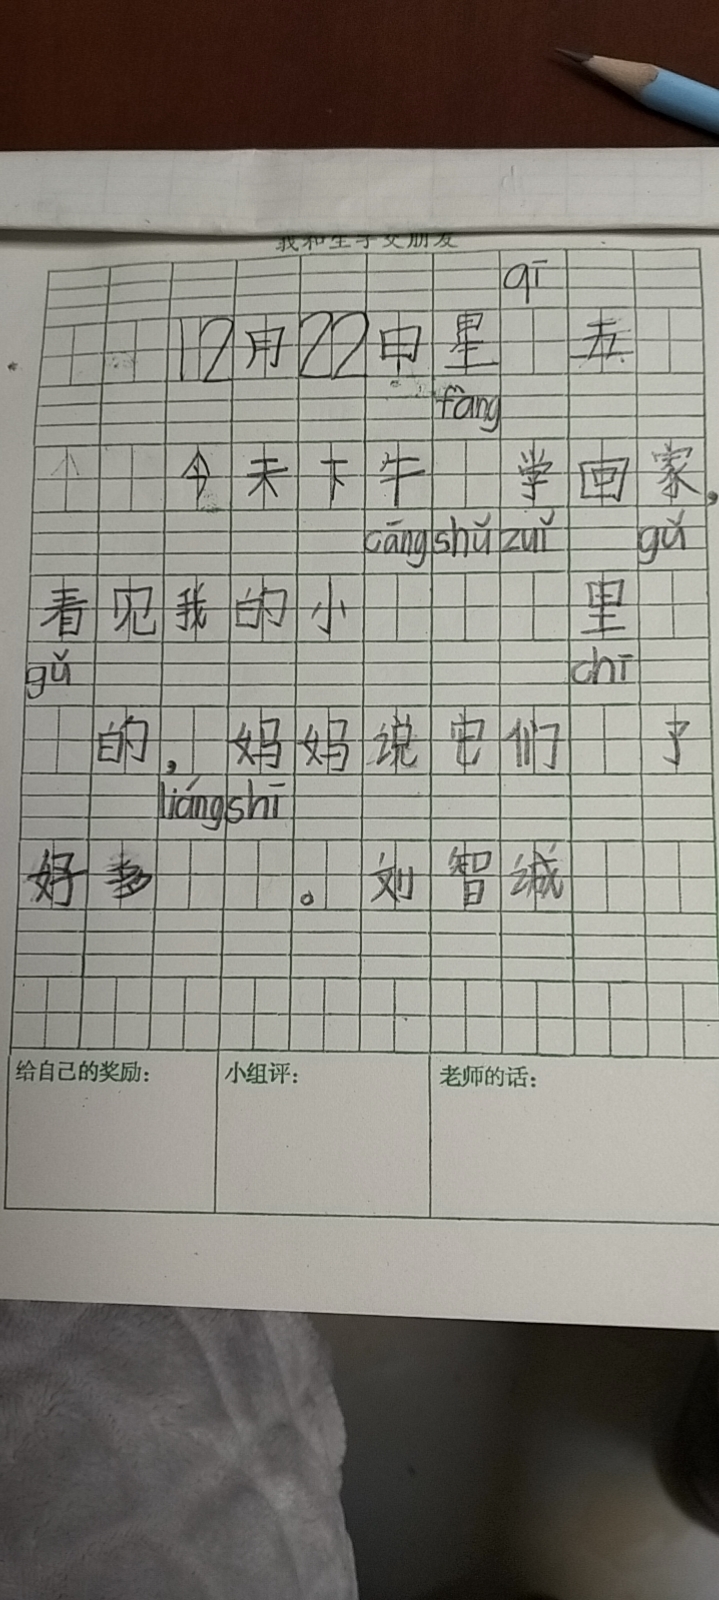 我和生字交朋友
qī
12月22日星 五
fàng
今天下午 学回家，
cāng shǔ zuǐ gǔ
看见我的小 里
gǔ chī
的，妈妈说它们 了
liáng shī
好多 。刘智诚
给自己的奖励： 小组评： 老师的话：